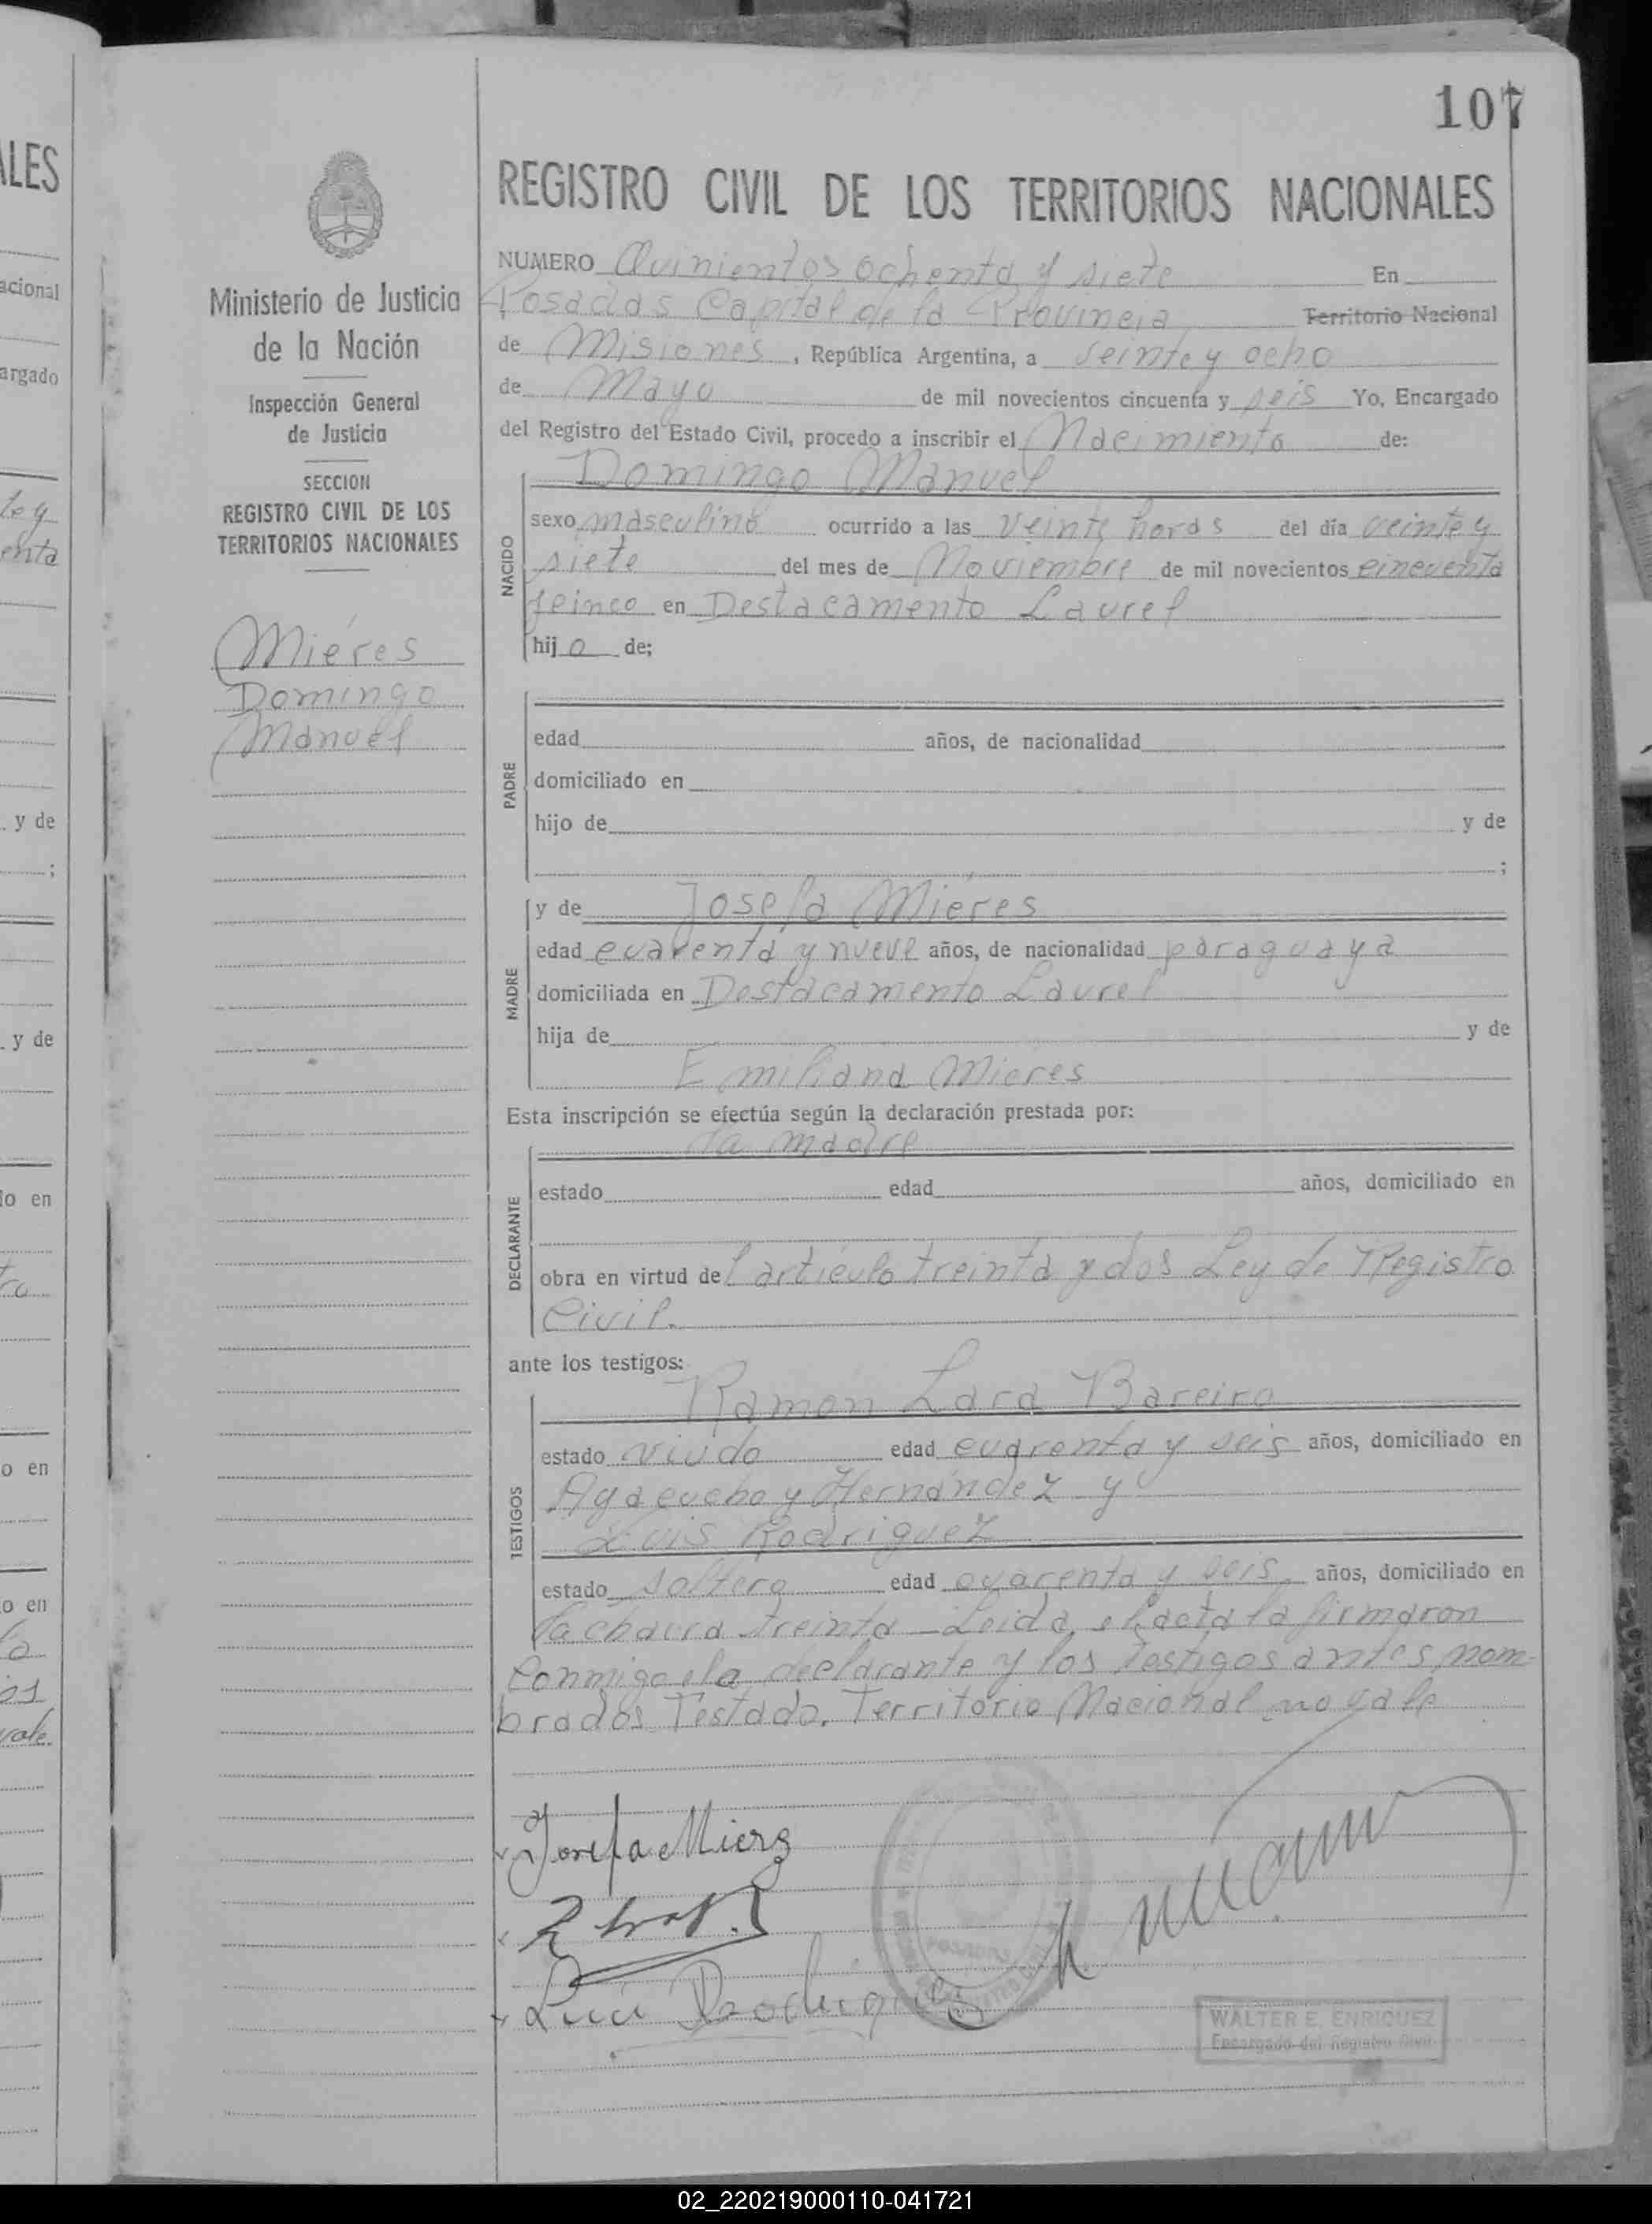 107
REGISTRO CIVIL DE LOS TERRITORIOS NACIONALES
Ministerio de Justicia
de la Nación
Inspección General
de Justicia
SECCION
REGISTRO CIVIL DE LOS
TERRITORIOS NACIONALES
Miéres
Domingo
Manuel
NUMERO Quinientos ochenta y siete En
Posadas Capital de la Provincia Territorio Nacional
de Misiones, República Argentina, a veinte y ocho
de Mayo de mil novecientos cincuenta y seis Yo, Encargado
del Registro del Estado Civil, procedo a inscribir el Nacimiento de:
Domingo Manuel
NACIDO
sexo masculino ocurrido a las veinte horas del día veinte y
siete del mes de Noviembre de mil novecientos cincuenta
y cinco en Destacamento Laurel
hijo de;
PADRE
edad años, de nacionalidad
domiciliado en
hijo de y de
;
MADRE
y de Josefa Miéres
edad cuarenta y nueve años, de nacionalidad paraguaya
domiciliada en Destacamento Laurel
hija de y de
Emiliana Mieres
Esta inscripción se efectúa según la declaración prestada por:
la madre
DECLARANTE
estado edad años, domiciliado en
obra en virtud del artículo treinta y dos Ley de Registro
Civil.
ante los testigos:
Ramón Lara Bareiro
TESTIGOS
estado viudo edad cuarenta y seis años, domiciliado en
Ayacucho y Hernández y
Luis Rodriguez
estado soltero edad cuarenta y seis años, domiciliado en
la chacra treinta - Leida el acta la firmaron
conmigo la declarante y los testigos antes nom-
brados Testado. Territorio Nacional no vale
Josefa Mierz
Luis Rodriguez
POSADAS
WALTER E. ENRIQUEZ
Encargado del Registro Civil
ALES
acional
argado
y de
;
y de
o en
o en
o en
vale.
02_220219000110-041721